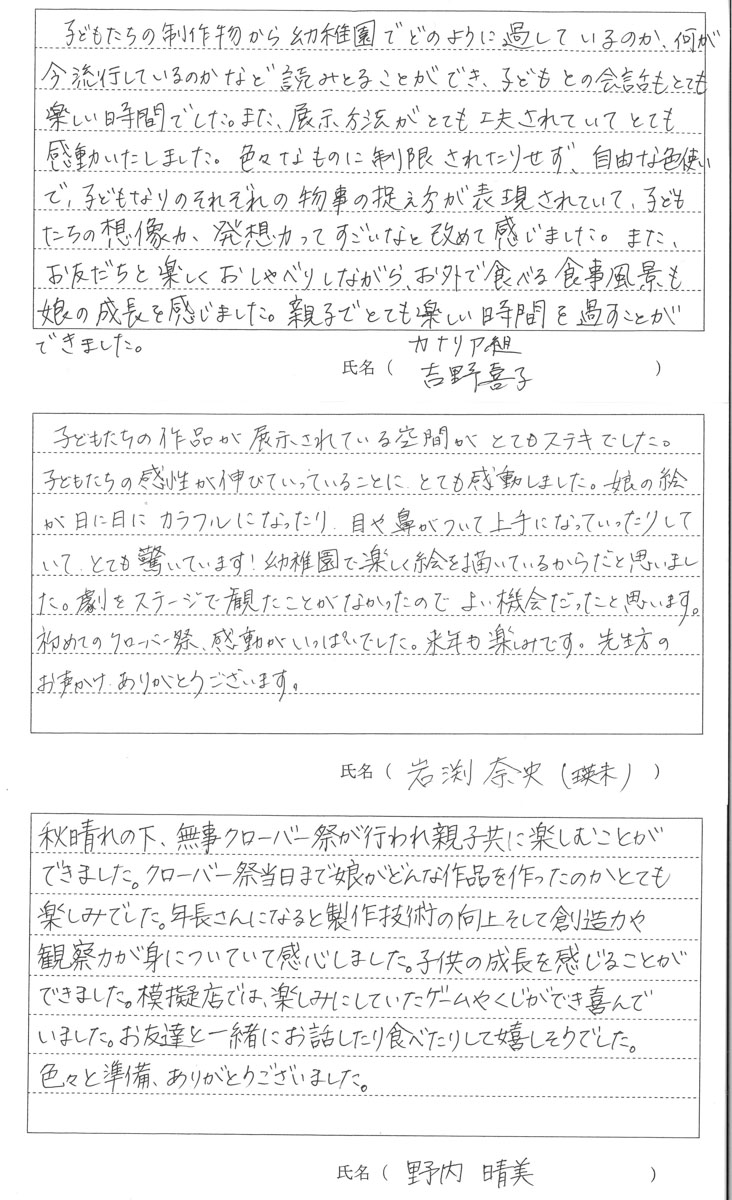 子どもたちの制作物から幼稚園でどのように過しているのか、何が
今流行しているのかなど読みとることができ、子どもとの会話もとても
楽しい時間でした。また、展示方法がとても工夫されていてとても
感動いたしました。色々なものに制限されたりせず、自由な色使い
で、子どもなりのそれぞれの物事の捉え方が表現されていて、子ども
たちの想像力、発想力ってすごいなと改めて感じました。また、
お友だちと楽しくおしゃべりしながら、お外で食べる食事風景も
娘の成長を感じました。親子でとても楽しい時間を過すことが
できました。
カナリア組
氏名（吉野喜子）
子どもたちの作品が展示されている空間がとてもステキでした。
子どもたちの感性が伸びていっていることに、とても感動しました。娘の絵
が日に日にカラフルになったり、目や鼻がついて上手になっていったりして
いて、とても驚いています！幼稚園で楽しく絵を描いているからだと思いまし
た。劇をステージで観たことがなかったのでよい機会だったと思います。
初めてのクローバー祭、感動がいっぱいでした。来年も楽しみです。先生方の
お声かけ、ありがとうございます。
氏名（岩渕 奈央（瑛未））
秋晴れの下、無事クローバー祭が行われ親子共に楽しむことが
できました。クローバー祭当日まで娘がどんな作品を作ったのかとても
楽しみでした。年長さんになると製作技術の向上そして創造力や
観察力が身についていて感心しました。子供の成長を感じることが
できました。模擬店では、楽しみにしていたゲームやくじができ喜んで
いました。お友達と一緒にお話したり食べたりして嬉しそうでした。
色々と準備、ありがとうございました。
氏名（野内 晴美）